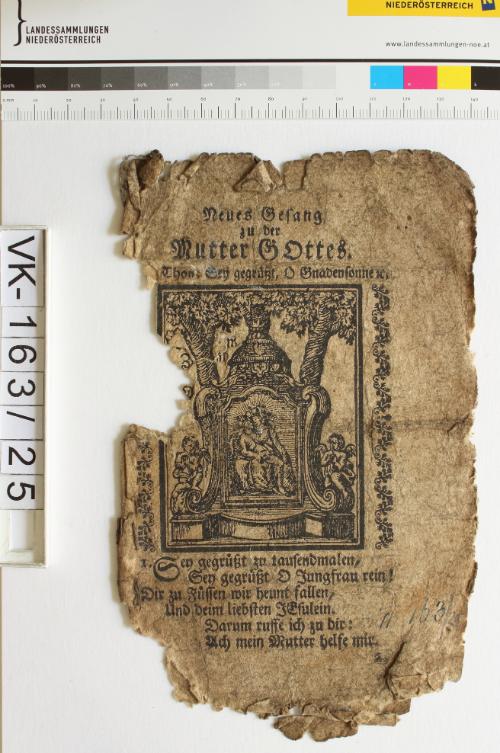 LANDESSAMMLUNGEN
NIEDERÖSTERREICH
NIEDERÖSTERREICH
www.landessammlungen-noe.at
VK-163/25
Neues Gesang
zu der
Mutter GOttes.
Thon: Sey gegrüßt, O Gnadensonne ꝛc.
1. Sey gegrüßt zu tausendmalen,
Sey gegrüßt O Jungfrau rein!
Dir zu Füssen wir heunt fallen,
Und deim liebsten JEsulein.
Darum ruffe ich zu dir:
Ach mein Mutter helfe mir.